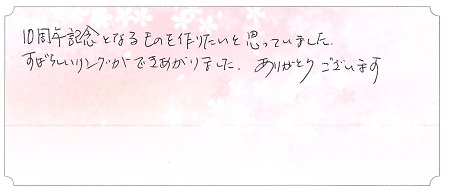 10周年記念となるものを作りたいと思っていました.
すばらしいリングができあがりました. ありがとうございます